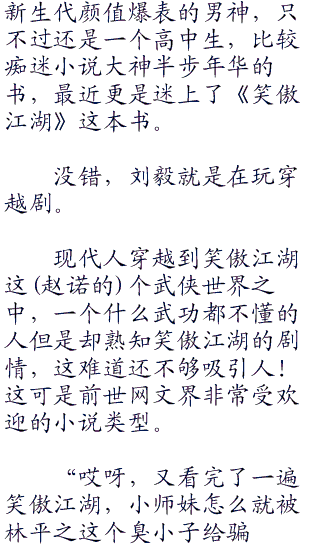 新生代颜值爆表的男神，只
不过还是一个高中生，比较
痴迷小说大神半步年华的
书，最近更是迷上了《笑傲
江湖》这本书。
没错，刘毅就是在玩穿
越剧。
现代人穿越到笑傲江湖
这(赵诺的)个武侠世界之
中，一个什么武功都不懂的
人但是却熟知笑傲江湖的剧
情，这难道还不够吸引人！
这可是前世网文界非常受欢
迎的小说类型。
“哎呀，又看完了一遍
笑傲江湖，小师妹怎么就被
林平之这个臭小子给骗